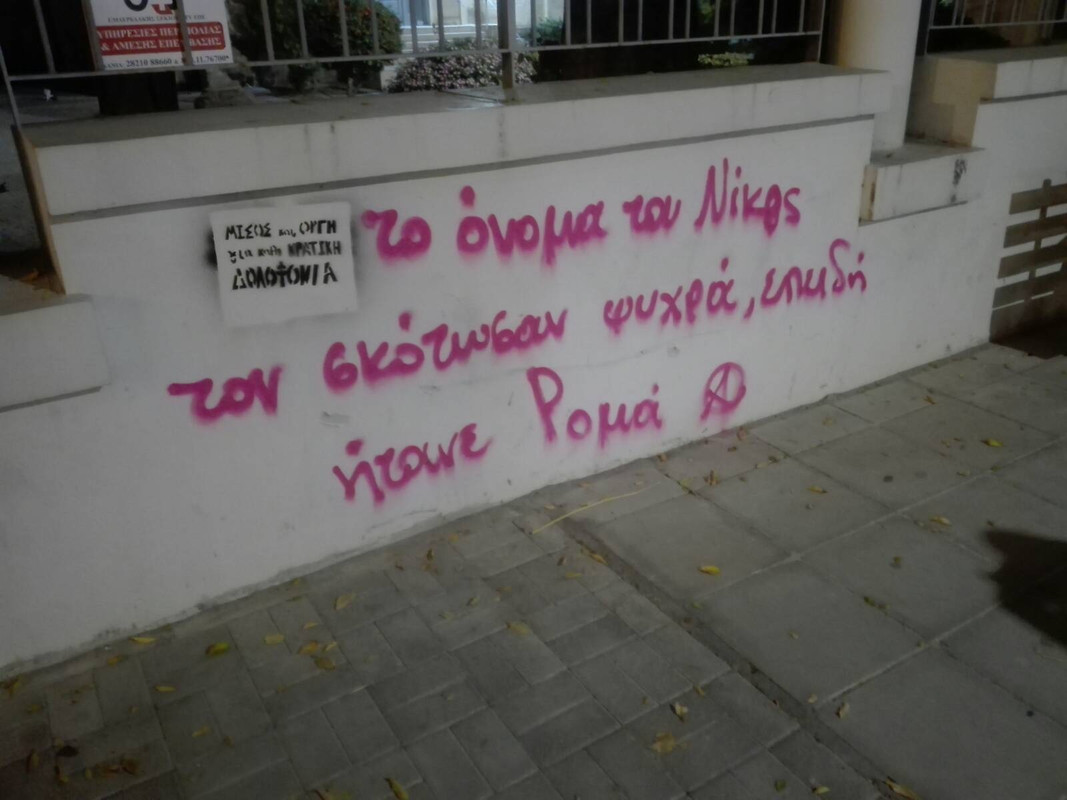 ΥΠΗΡΕΣΙΕΣ ΠΕΡΙΠΟΛΙΑΣ
& ΑΜΕΣΗΣ ΕΠΕΜΒΑΣΗΣ
28210 88660
ΜΙΣΟΣ και ΟΡΓΗ
για καθε ΚΡΑΤΙΚΗ
ΔΟΛΟΦΟΝΙΑ
το όνομα του Νίκος
τον σκότωσαν ψυχρά, επειδή
ήτανε Ρομά Ⓐ